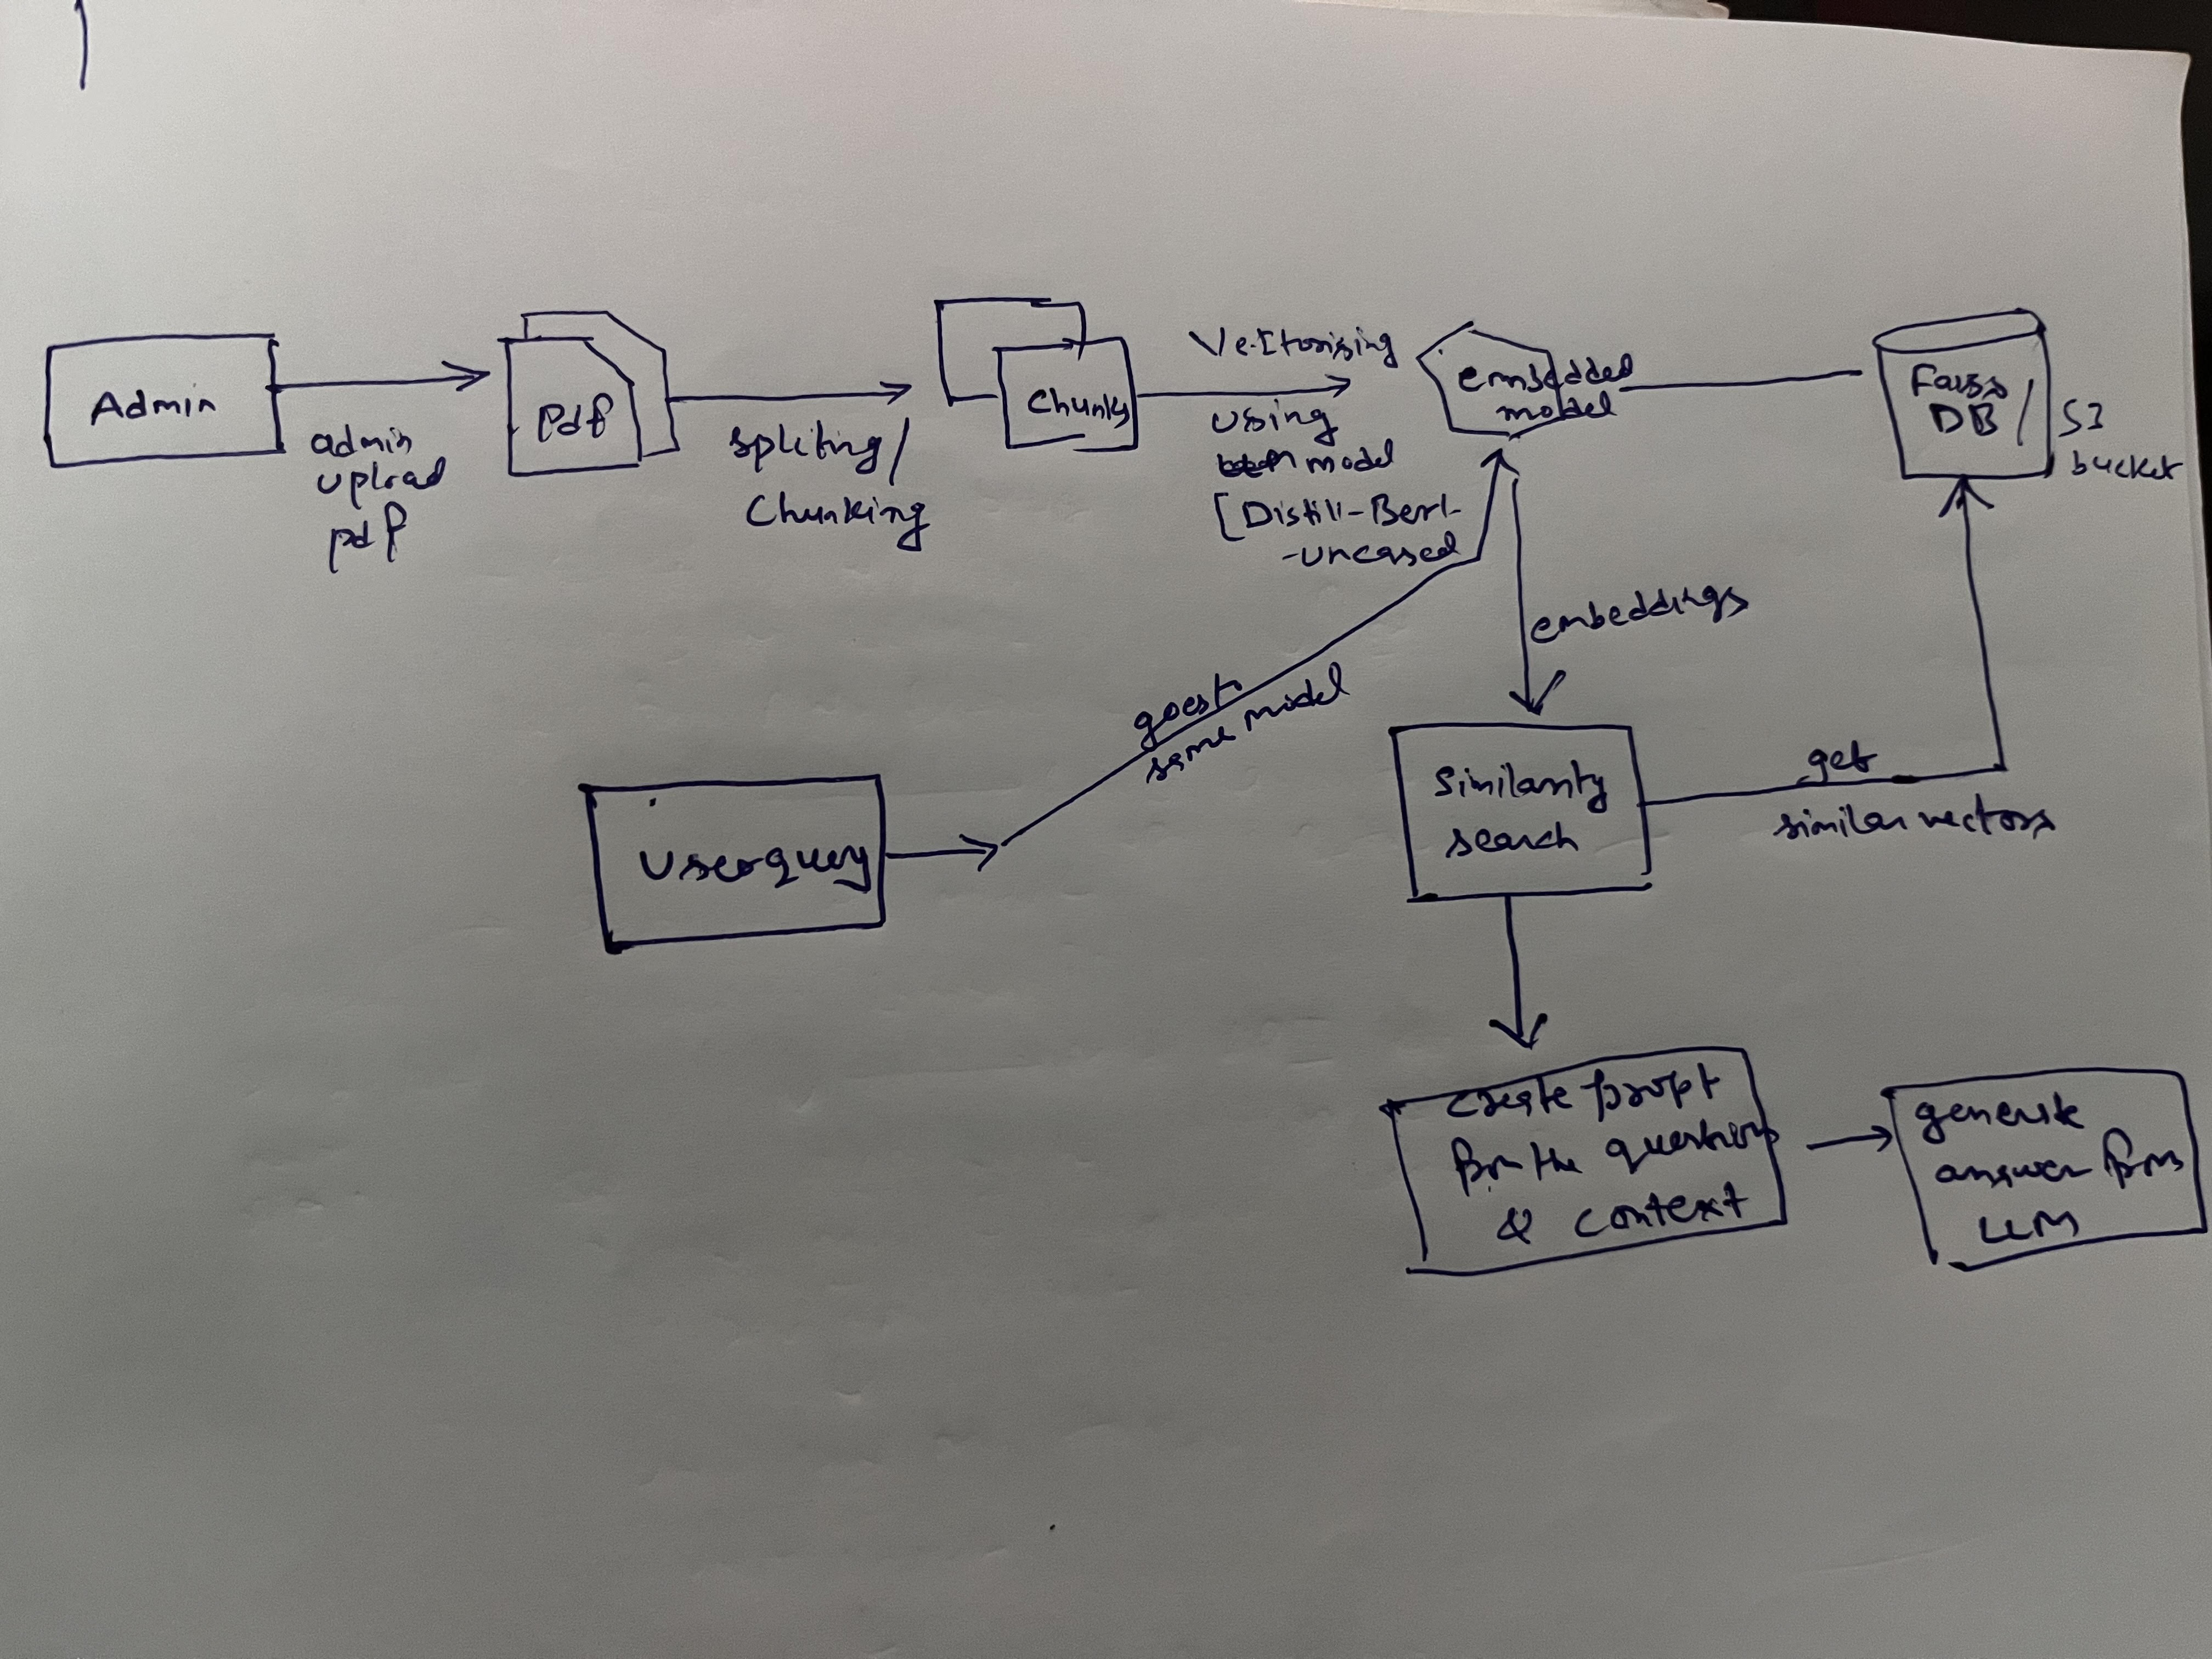 Admin
admin
upload
pdf
Pdf
spliting/
Chunking
Chunks
Vectorising
using
model
[Distill-Bert-
-uncased
embedded
model
Faiss
DB/
S3
bucket
embeddings
goes to
same model
User query
Similarity
search
get
similar vectors
create propt
from the question
& context
generate
answer from
LLM